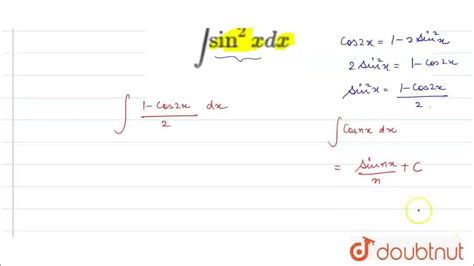 ∫sin² xdx
∫ (1-Cos2x)/2 dx
Cos2x = 1-2Sin²x
2Sin²x = 1-Cos2x
Sin²x = (1-Cos2x)/2.
∫Cosnx dx
= Sinnx/n + C
doubtnut